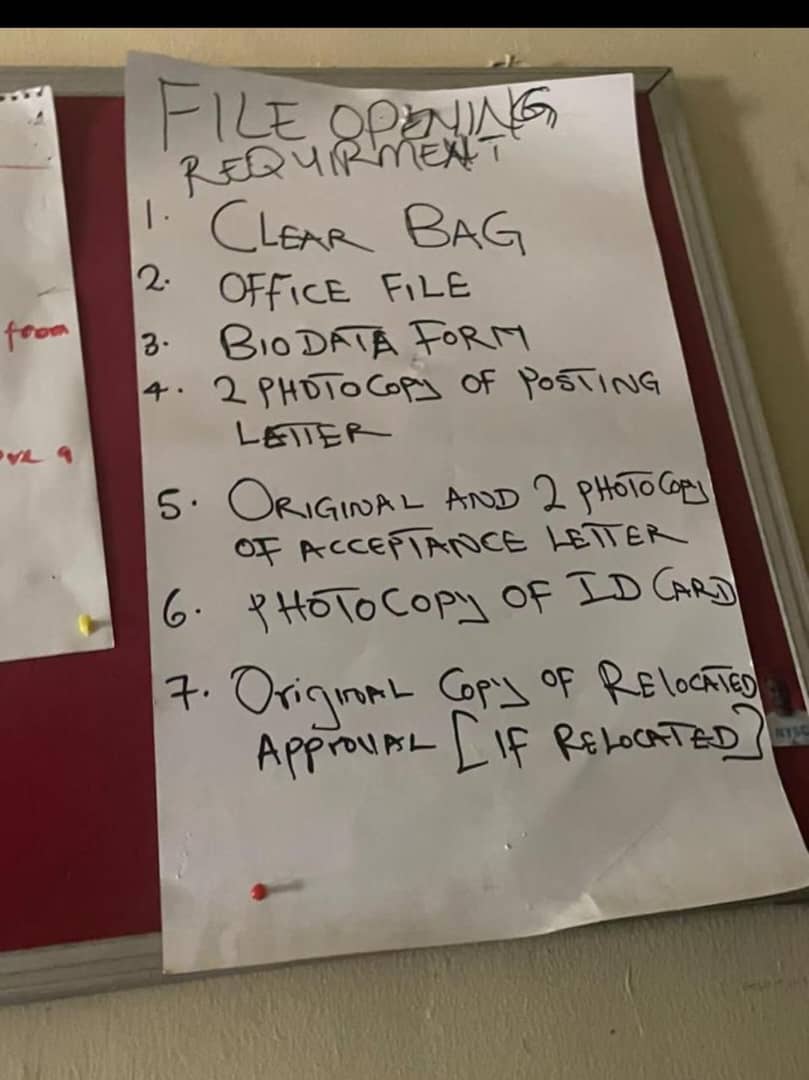 FILE OPENING
REQUIRMENT
1. CLEAR BAG
2. OFFICE FILE
3. BIODATA FORM
4. 2 PHOTOCOPY OF POSTING
LETTER
5. ORIGINAL AND 2 PHOTOCOPY
OF ACCEPTANCE LETTER
6. PHOTOCOPY OF ID CARD
7. Original Copy OF RELOCATED
APPROVAL [IF RELOCATED]
from